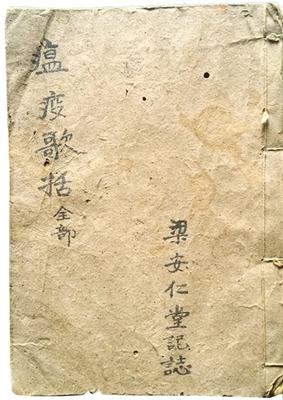 瘟疫歌括全部
梁安仁堂記誌